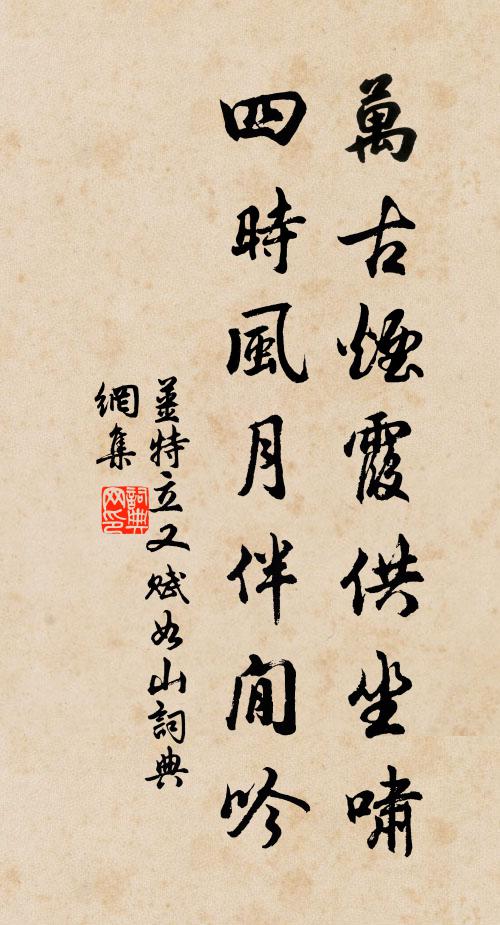 萬古煙霞供坐嘯
四時風月伴閒吟
姜特立又賦如山詞典
網集
詞典
网印